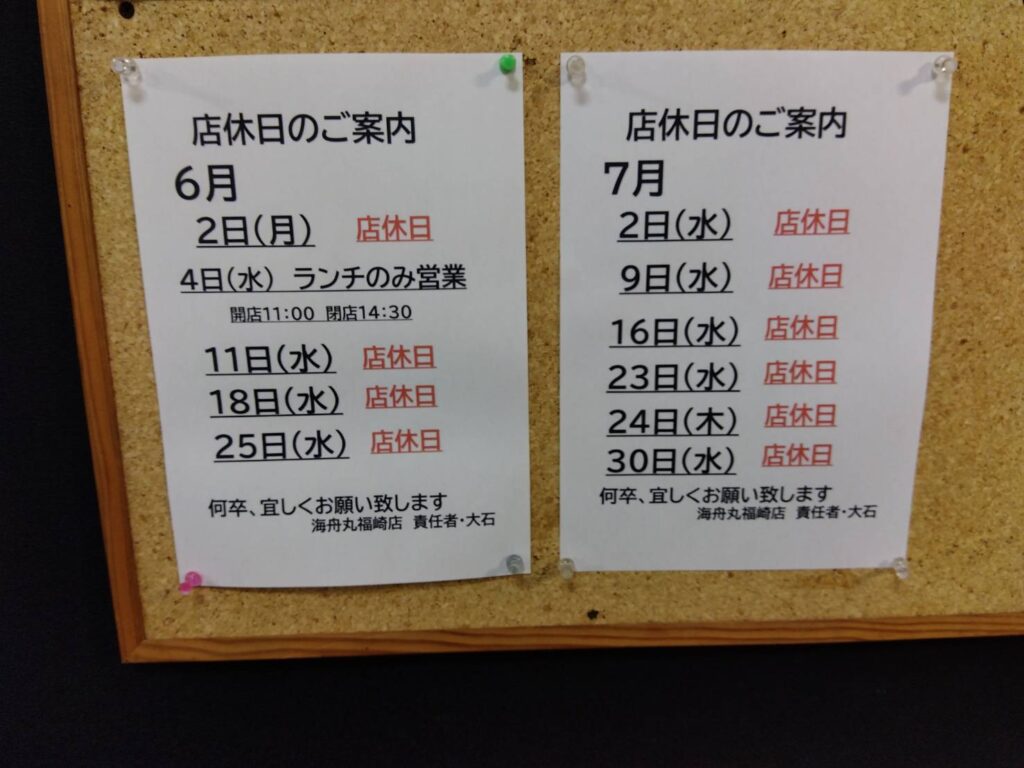 店休日のご案内
6月
2日(月) 店休日
4日(水) ランチのみ営業
開店11:00 閉店14:30
11日(水) 店休日
18日(水) 店休日
25日(水) 店休日
何卒、宜しくお願い致します
海舟丸福崎店 責任者・大石
店休日のご案内
7月
2日(水) 店休日
9日(水) 店休日
16日(水) 店休日
23日(水) 店休日
24日(木) 店休日
30日(水) 店休日
何卒、宜しくお願い致します
海舟丸福崎店 責任者・大石